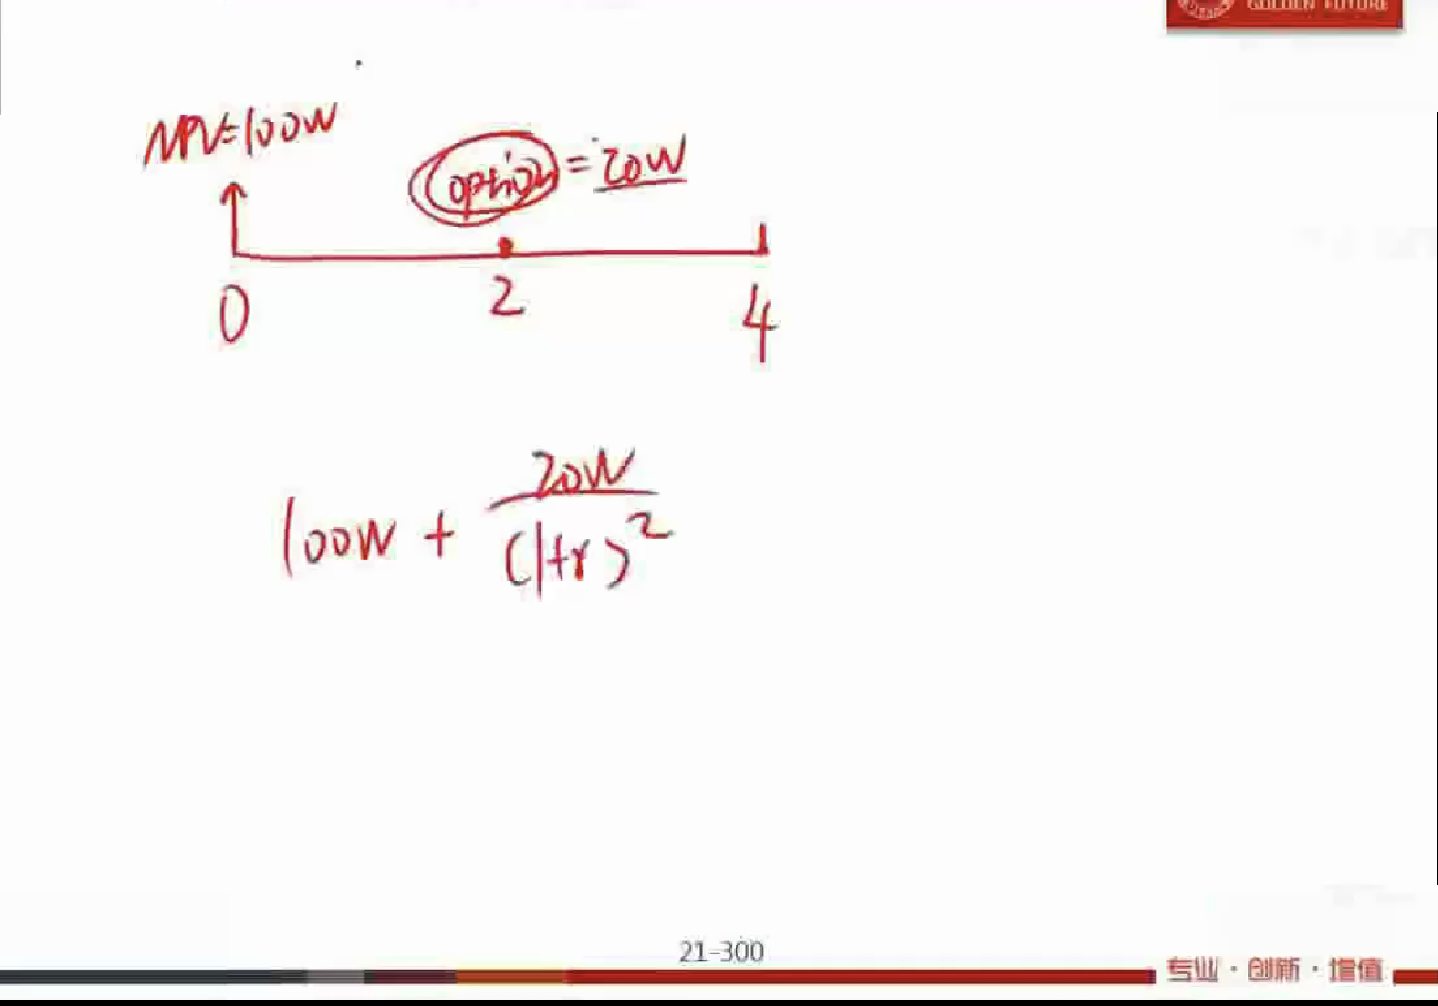 GOLDEN FUTURE
NPV=100W
option = 20W
0 2 4
100W + 20W
(1+r)²
21-300
专业·创新·增值